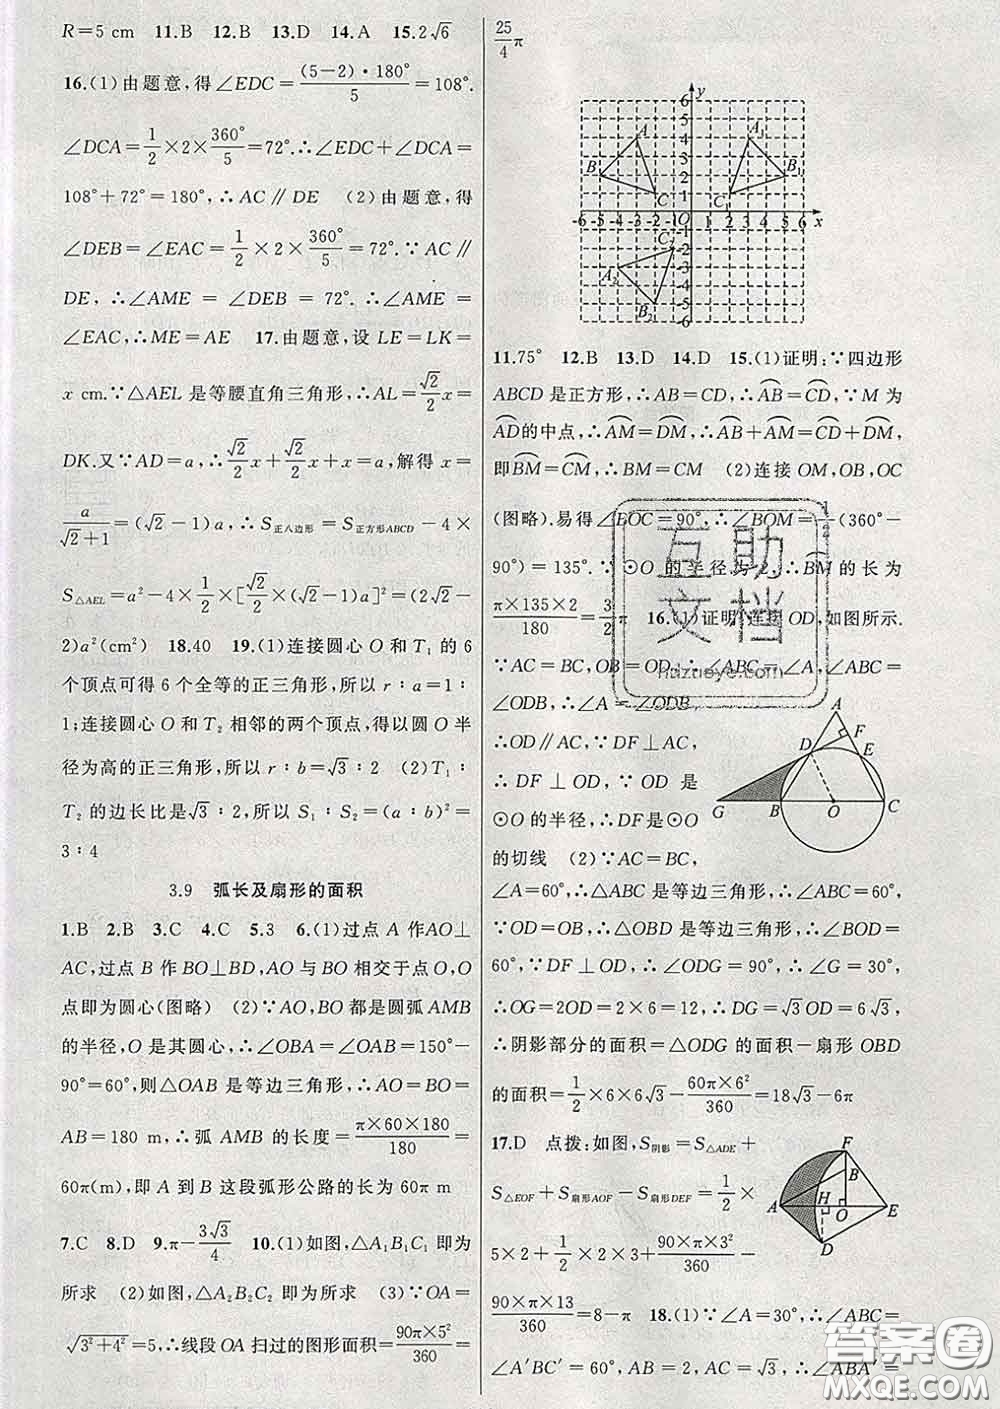 R=5 cm 11.B 12.B 13.D 14.A 15.2√6
16.(1)由题意,得∠EDC=(5-2)·180°/5=108°.
∠DCA=1/2×2×360°/5=72°.∴∠EDC+∠DCA=
108°+72°=180°,∴AC∥DE (2)由题意,得
∠DEB=∠EAC=1/2×2×360°/5=72°.∵AC∥
DE,∴∠AME=∠DEB=72°.∴∠AME=
∠EAC,∴ME=AE 17.由题意,设LE=LK=
x cm.∵△AEL是等腰直角三角形,∴AL=√2/2x=
DK.又∵AD=a,∴√2/2x+√2/2x+x=a,解得x=
a/(√2+1)=(√2-1)a,∴S正八边形=S正方形ABCD-4×
S△AEL=a²-4×1/2×[√2/2×(√2-1)a]²=(2√2-
2)a²(cm²) 18.40 19.(1)连接圆心O和T₁的6
个顶点可得6个全等的正三角形,所以r∶a=1∶
1;连接圆心O和T₂相邻的两个顶点,得以圆O半
径为高的正三角形,所以r∶b=√3∶2 (2)T₁∶
T₂的边长比是√3∶2,所以S₁∶S₂=(a∶b)²=
3∶4
3.9 弧长及扇形的面积
1.B 2.B 3.C 4.C 5.3 6.(1)过点A作AO⊥
AC,过点B作BO⊥BD,AO与BO相交于点O,O
点即为圆心(图略) (2)∵AO,BO都是圆弧AMB
的半径,O是其圆心,∴∠OBA=∠OAB=150°-
90°=60°,则△OAB是等边三角形,∴AO=BO=
AB=180 m,∴弧AMB的长度=π×60×180/180=
60π(m),即A到B这段弧形公路的长为60π m
7.C 8.D 9.π-3√3/4 10.(1)如图,△A₁B₁C₁即为
所求 (2)如图,△A₂B₂C₂即为所求 (3)∵OA=
√(3²+4²)=5,∴线段OA扫过的图形面积=90π×5²/360=
25/4π
y
6
5
4
3
2
1
-6 -5 -4 -3 -2 -1 O 1 2 3 4 5 6 x
-1
-2
-3
-4
-5
-6
A B C A₁ B₁ C₁ A₂ B₂ C₂
11.75° 12.B 13.D 14.D 15.(1)证明:∵四边形
ABCD是正方形,∴AB=CD,∴AB⌒=CD⌒,∵M为
AD⌒的中点,∴AM⌒=DM⌒,∴AB⌒+AM⌒=CD⌒+DM⌒,
即BM⌒=CM⌒,∴BM=CM (2)连接OM,OB,OC
(图略).易得∠BOC=90°,∴∠BOM=1/2(360°-
90°)=135°.∵⊙O的半径为2,∴BM⌒的长为
π×135×2/180=3/2π 16.(1)证明:连接OD,如图所示.
∵AC=BC,OB=OD,∴∠ABC=∠A,∠ABC=
∠ODB,∴∠A=∠ODB,
∴OD∥AC,∵DF⊥AC,
∴DF⊥OD,∵OD是
⊙O的半径,∴DF是⊙O
的切线 (2)∵AC=BC,
A D F E G B O C
∠A=60°,∴△ABC是等边三角形,∴∠ABC=60°,
∵OD=OB,∴△OBD是等边三角形,∴∠BOD=
60°,∵DF⊥OD,∴∠ODG=90°,∴∠G=30°,
∴OG=2OD=2×6=12,∴DG=√3OD=6√3,
∴阴影部分的面积=△ODG的面积-扇形OBD
的面积=1/2×6×6√3-60π×6²/360=18√3-6π
17.D 点拨:如图,S阴影=S△ADE+
S△EOF+S扇形AOF-S扇形DEF=1/2×
5×2+1/2×2×3+90×π×3²/360-
90×π×13/360=8-π 18.(1)∵∠A=30°,∴∠ABC=
F B H A O E D
∠A′BC′=60°,AB=2,AC=√3,∴∠ABA′=
互助
文档
huzuoye.com
答案圈
MXQE.COM